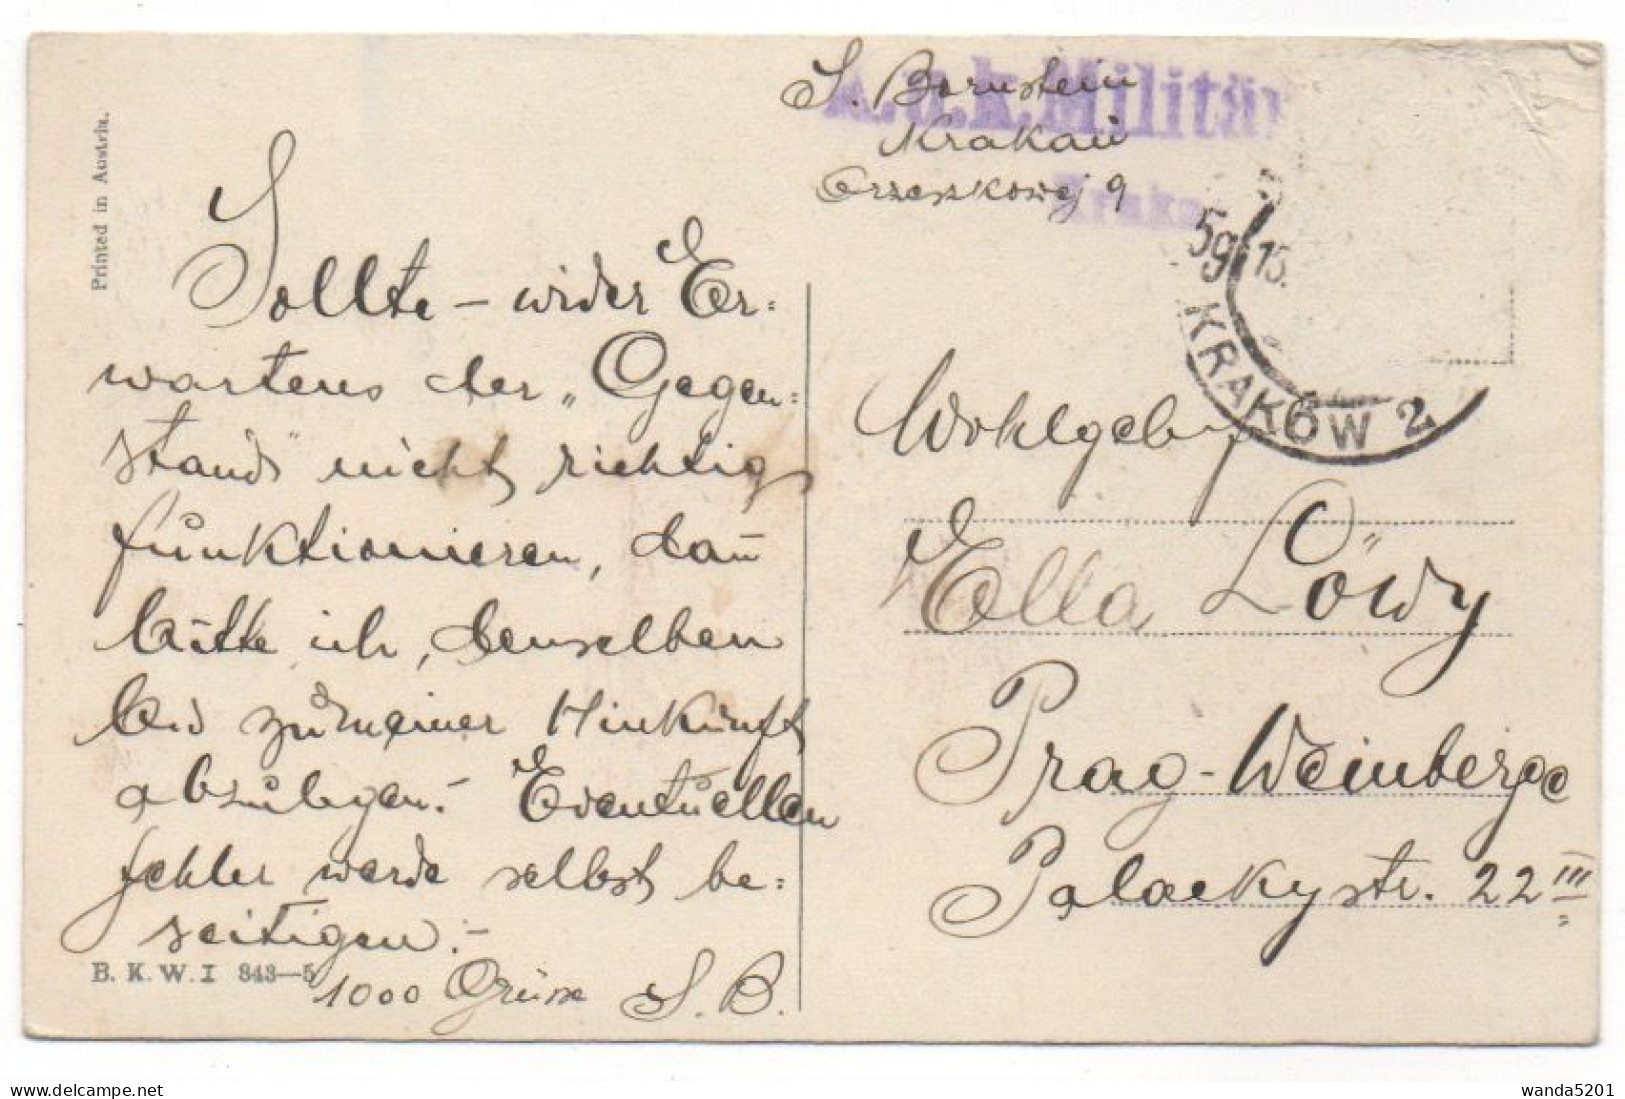 Printed in Austria.
S. Bornstein
Krakau
Orzeszkowej 9
Sollte – wider Er=
wartens der „Gegen=
stand" nicht richtig
funktionieren, dann
bitte ich, denselben
bis zu meiner Hinkunft
abzulegen.– Eventuellen
Fehler werde selbst be=
seitigen.–
1000 Grüsse S. B.
B. K. W. I 843—5
15.
KRAKÓW 2
Wohlgeb.
Ella Löwy
Prag - Weinberge
Palackystr. 22 III
wanda5201